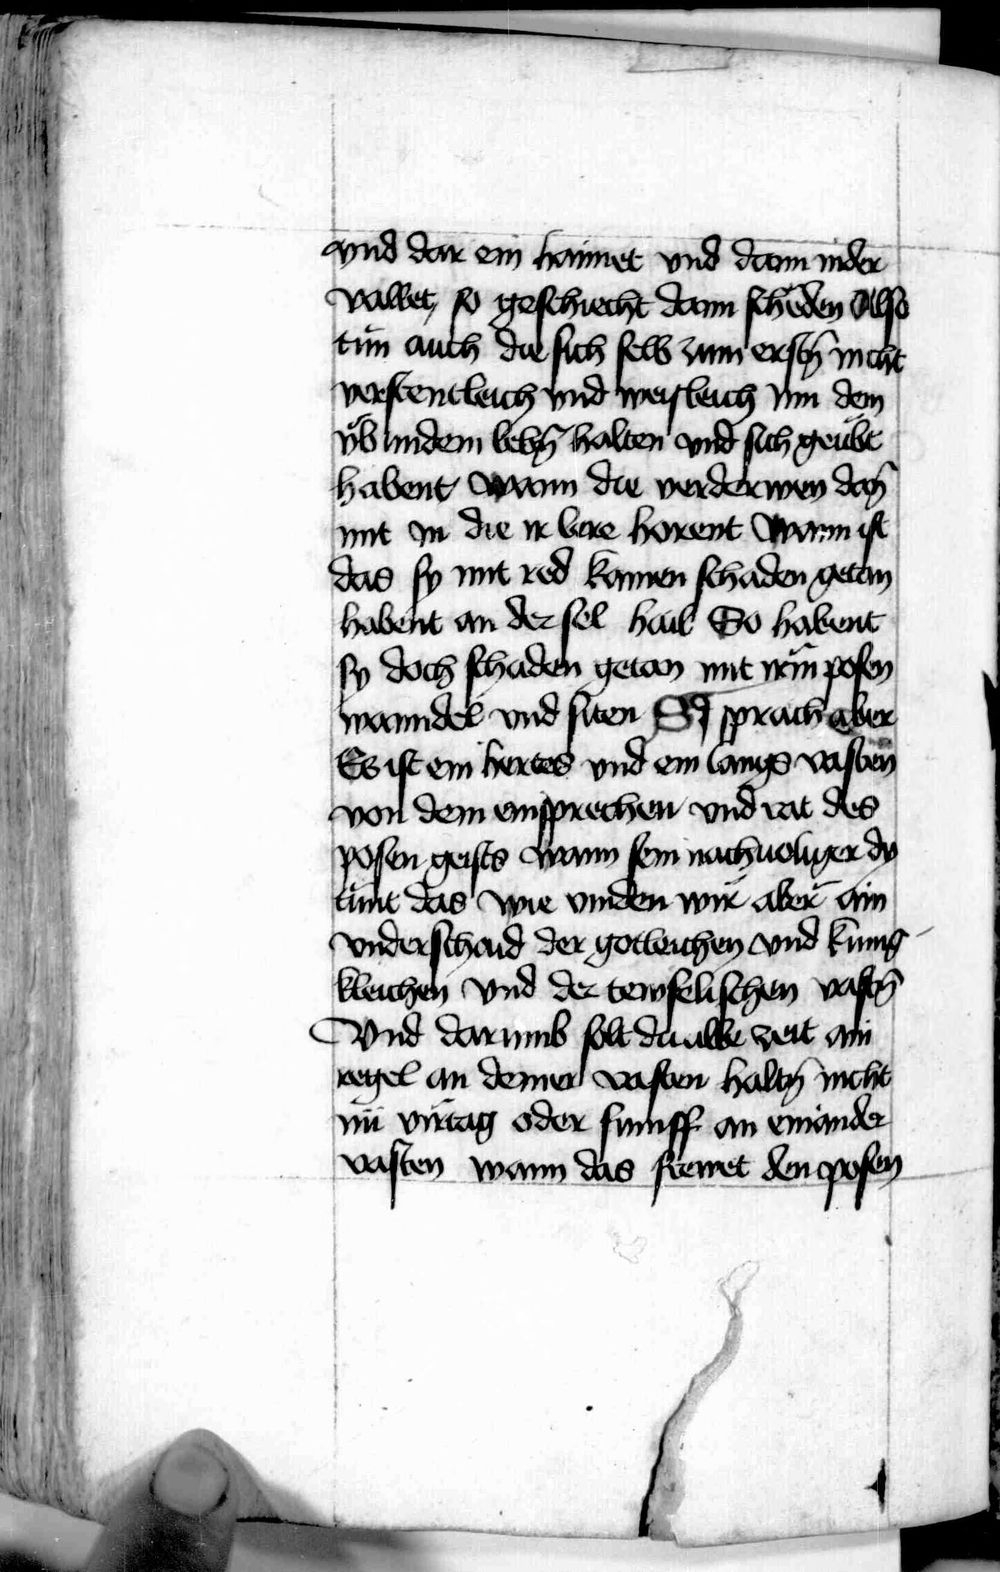 vnd dar ein haimet vnd dann nider
vallet, so geschiecht dann schäden Also
tün auch die sich selb zum erstn̄ nicht
verstentleich vnd weisleich inn dem
vͦb indem lebn̄ halten vnd sich geübt
habent wann die verderwen dan̄
mit in die ir lere horent Wann ist
das sy mit red kainen schaden getan
habent an der sel hail So habent
sy doch schaden getan mit irm̄ posen
wanndel vnd siten Si sprach aber
Es ist ein hertes vnd ein langs vasten
von dem einsprechen vnd rat des
posen geists wann sein nachuoliger dy
tünt das wie vinden wir aber ain
vnderschaid der gotleichen vnd künig
kleichen vnd der tewfelischen vastn̄
Vnd darumb solt du alle zeit ain
regel an deiner vasten haltn̄ nicht
iiii virtag oder fünff an einander
vasten wann das frewet den posen